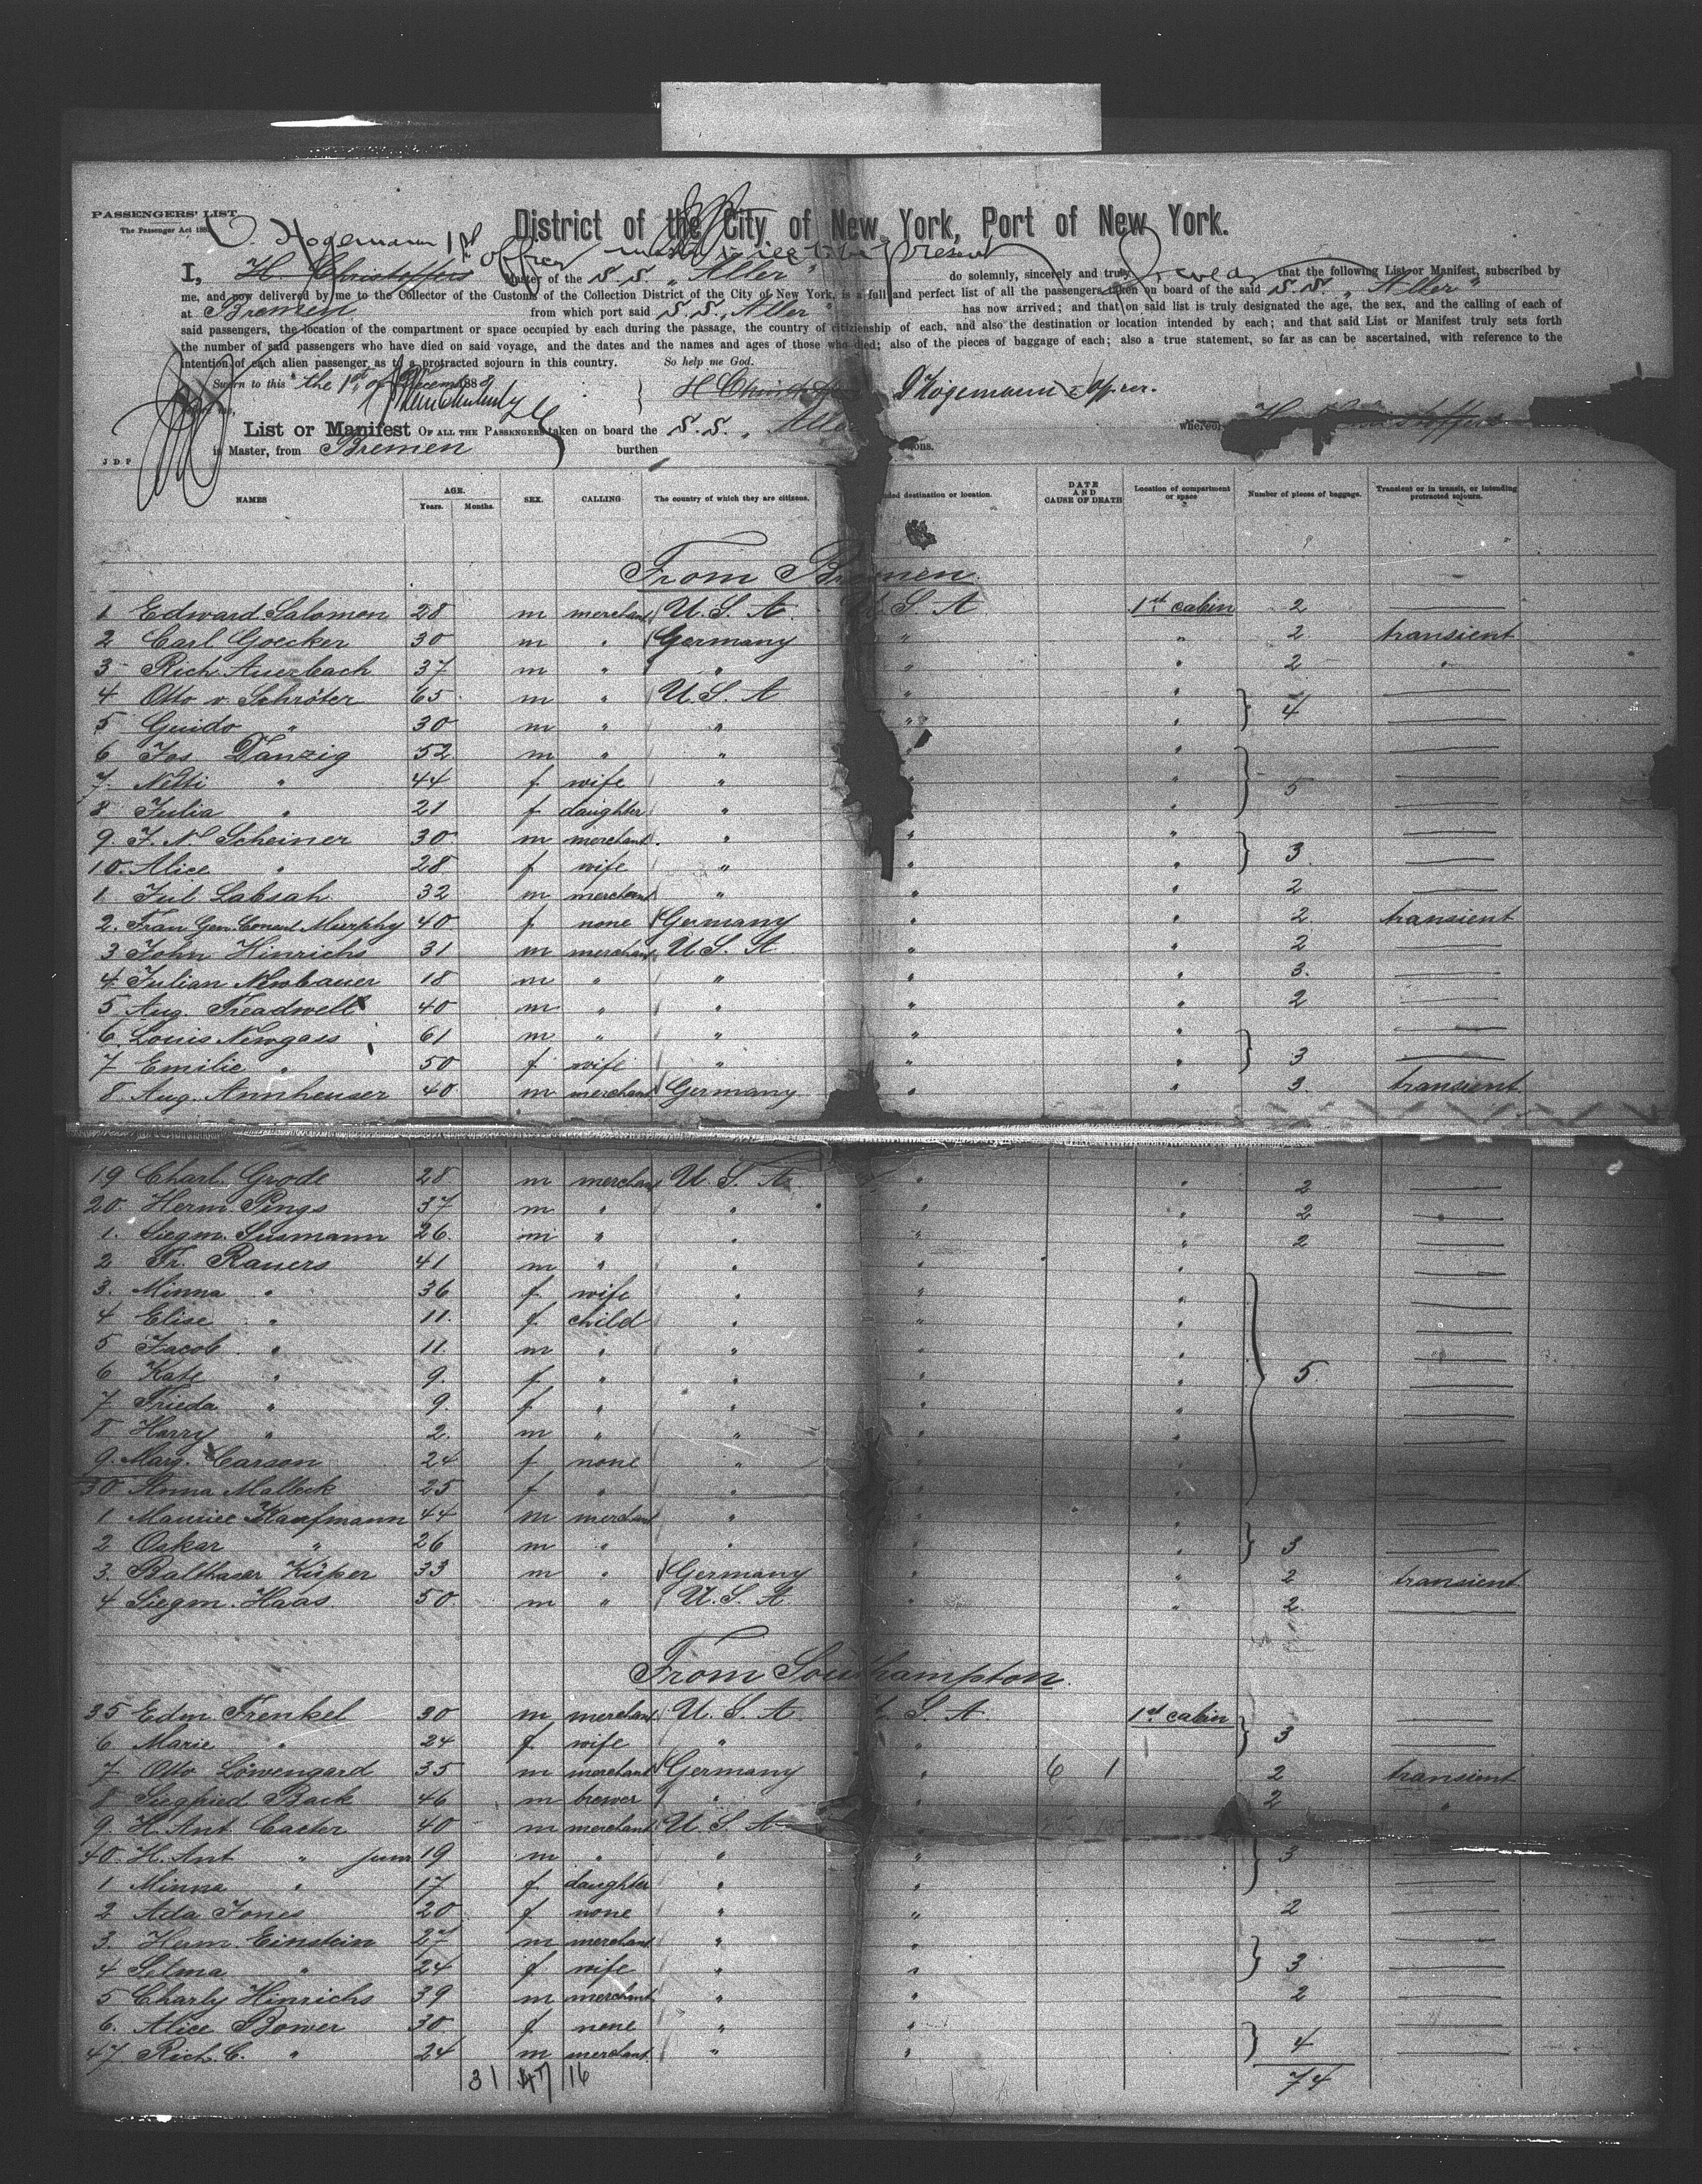 PASSENGERS' LIST.
The Passenger Act 188
District of the City of New York, Port of New York.
Hogemann 1st officer present
I, H. Christoffers Master of the S.S. „Aller" do solemnly, sincerely and truly swear that the following List or Manifest, subscribed by
me, and now delivered by me to the Collector of the Customs of the Collection District of the City of New York, is a full and perfect list of all the passengers taken on board of the said S.S. „Aller"
at Bremen from which port said S.S. „Aller" has now arrived; and that on said list is truly designated the age, the sex, and the calling of each of
said passengers, the location of the compartment or space occupied by each during the passage, the country of citizenship of each, and also the destination or location intended by each; and that said List or Manifest truly sets forth
the number of said passengers who have died on said voyage, and the dates and the names and ages of those who died; also of the pieces of baggage of each; also a true statement, so far as can be ascertained, with reference to the
intention of each alien passenger as to a protracted sojourn in this country. So help me God.
Sworn to this the 1st of Decem 1888 H Christoffers Hogemann I Offcer.
List or Manifest OF ALL THE PASSENGERS taken on board the S.S. „Aller whereof H. Christoffers
is Master, from Bremen burthen tons.
J D P
NAMES AGE. Years. Months. SEX. CALLING The country of which they are citizens. ded destination or location. DATE AND CAUSE OF DEATH Location of compartment or space Number of pieces of baggage. Transient or in transit, or intending protracted sojourn.
From Bremen
1 Edward Salomon 28 m merchant U. S. A. U. S. A 1st cabin 2 —
2 Carl Goecker 30 m " Germany " " 2 transient
3 Rich. Auerbach 37 m " " " " 2 "
4 Otto v. Schröter 65 m " U. S. A " " 4 —
5 Guido " 30 m " " " " —
6 Jos. Danzig 52 m " " " " —
7 Netti " 44 f wife " " " 5 —
8 Julia " 21 f daughter " " " —
9. J. N. Scheiner 30 m merchant " " " —
10. Alice " 28 f wife " " " 3. —
1 Jul. Labsah 32 m merchant " " 2 —
2. Frau Gen. Consul Murphy 40 f none Germany " " 2 transient
3 John Hinrichs 31 m merchant U. S. A " " 2 —
4. Julian Newbauer 18 m " " " " 3. —
5 Aug. Treadwell 40 m " " " " 2 —
6. Louis Newgass 61 m " " " " —
7 Emilie " 50 f wife " " " 3 —
8 Aug. Annheuser 40 m merchant Germany " " 3. transient
19 Charl. Grode 28 m merchant U. S. A. " " 2 —
20 Herm. Pings 37 m " " " " 2 —
1. Siegm. Susmann 26. m " " " " 2 —
2 Fr. Rauers 41 m " " " —
3. Minna " 36 f wife " " " —
4 Elise " 11. f child " " " —
5 Jacob " 11. m " " " —
6 Kate " 9. f " " " " 5. —
7 Frieda " 9. f " " " " —
8 Harry " 2. m " " " " —
9. Marg. Carson 24 f none " " —
30 Anna Malleck 25 f " " " " —
1 Maurice Kaufmann 44 m merchant " " —
2 Oskar " 26 m " " " 3 —
3. Balthasar Küper 33 m " Germany " " 2 transient
4 Siegm. Haas 50 m " U. S. A " " 2. —
From Southampton.
35 Edm. Frenkel 30 m merchant U. S. A. U. S. A. 1st cabin —
6 Marie " 24 f wife " " 3 —
7 Otto Löwengard 35 m merchant Germany " 6 1 2 transient
8 Siegfried Back 46 m brewer " 2 "
9. H. Ant. Carter 40 m merchant U. S. A
40. H. Ant " junr 19 m " " " 3 —
1 Minna " 17 f daughter " " —
2 Ada Jones 20 f none " " 2 —
3. Ham. Einstein 27 m merchant " " —
4 Selma " 24 f wife " " 3 —
5 Charly Hinrichs 39 m merchant " " 2 —
6. Alice Bower 30. f none " " —
47. Rich. C. " 24 m merchant " " 4 —
31 47 16 74